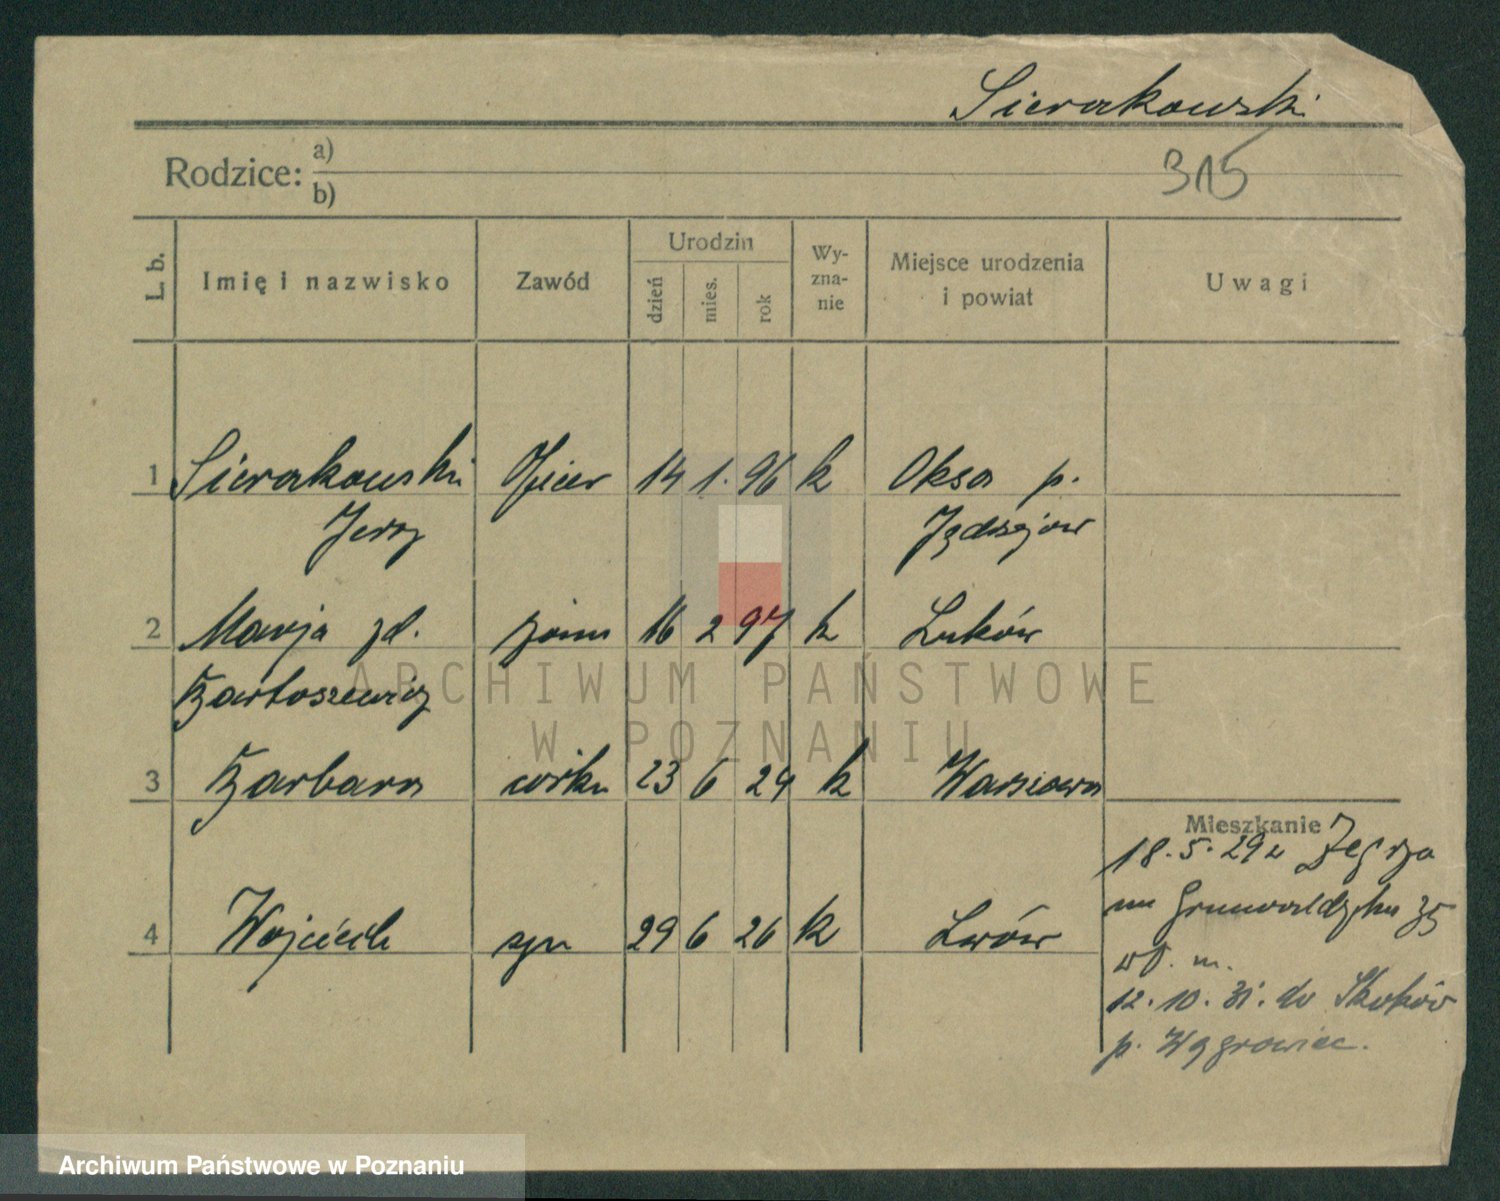 Sierakowski
315
Rodzice: a)
b)
L. b. Imię i nazwisko Zawód Urodzin dzień mies. rok Wy-zna-nie Miejsce urodzenia i powiat Uwagi
1 Sierakowski Oficer 14 1. 96 k Oksa p.
Jerzy Jędrzejow
2 Marja zd. żona 16 2 97 k Łuków
Bartoszewicz
3 Barbara córka 23 6 24 k Warszawa
Mieszkanie
18. 5. 29 z Zegrza
na Grunwaldzka 35
4 Wojciech syn 29 6 26 k Lwów
wł. m.
12. 10. 31. do Skoków
p. Wągrowiec.
ARCHIWUM PAŃSTWOWE
W POZNANIU
Archiwum Państwowe w Poznaniu